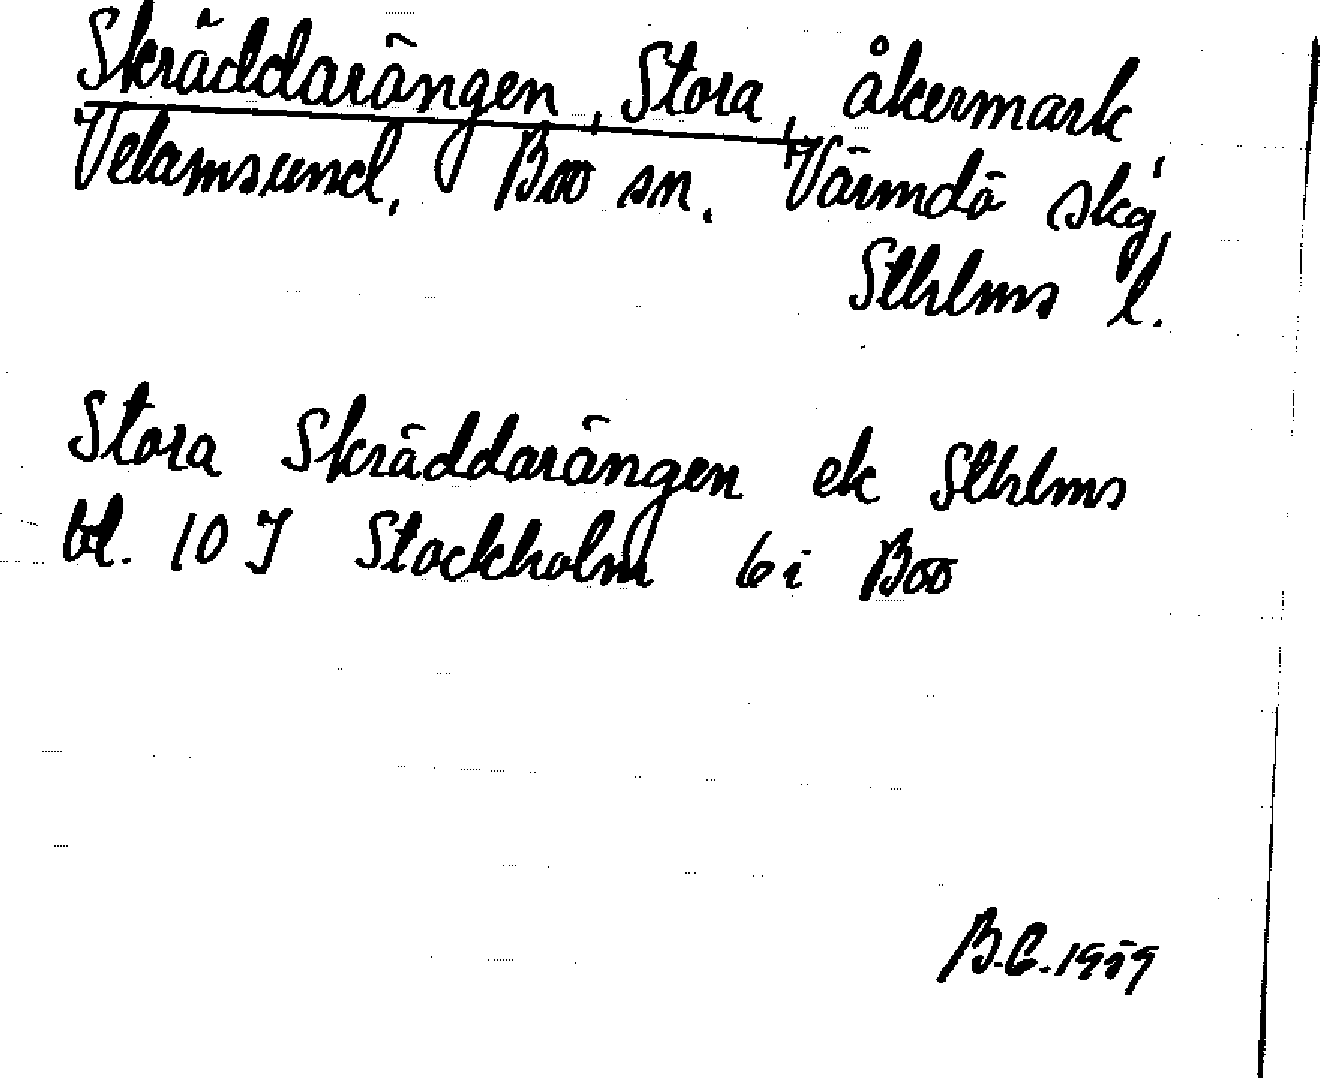 Skräddarängen, Stora, åkermark,
Velamsund, Boo sn. Värmdö skg,
Sthlms l.
Stora Skräddarängen ek Sthlms
bl. 10 J Stockholm 6 i Boo
B.C. 1959